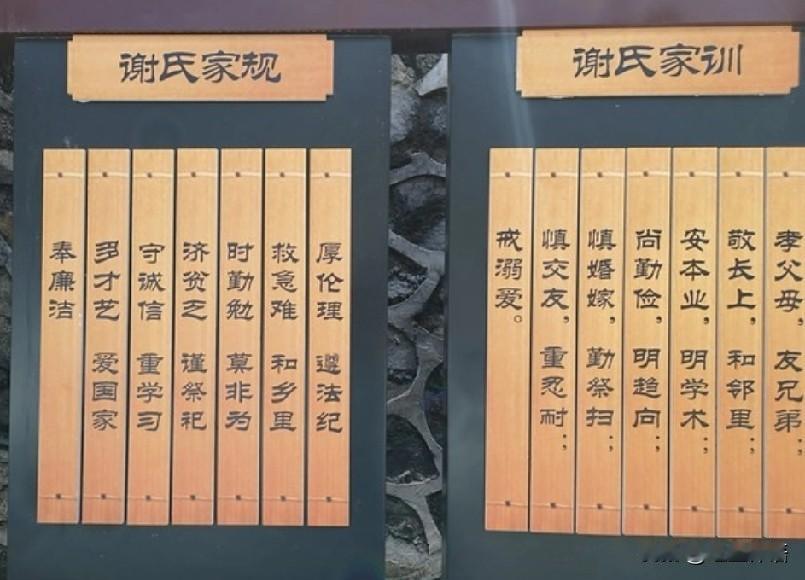 谢氏家规
厚伦理 遵法纪
救急难 和乡里
时勤勉 莫非为
济贫乏 谨祭祀
守诚信 重学习
多才艺 爱国家
奉廉洁
谢氏家训
孝父母，友兄弟；
敬长上，和邻里；
安本业，明学术；
尚勤俭，明趋向；
慎婚嫁，勤祭扫；
慎交友，重忍耐；
戒溺爱。